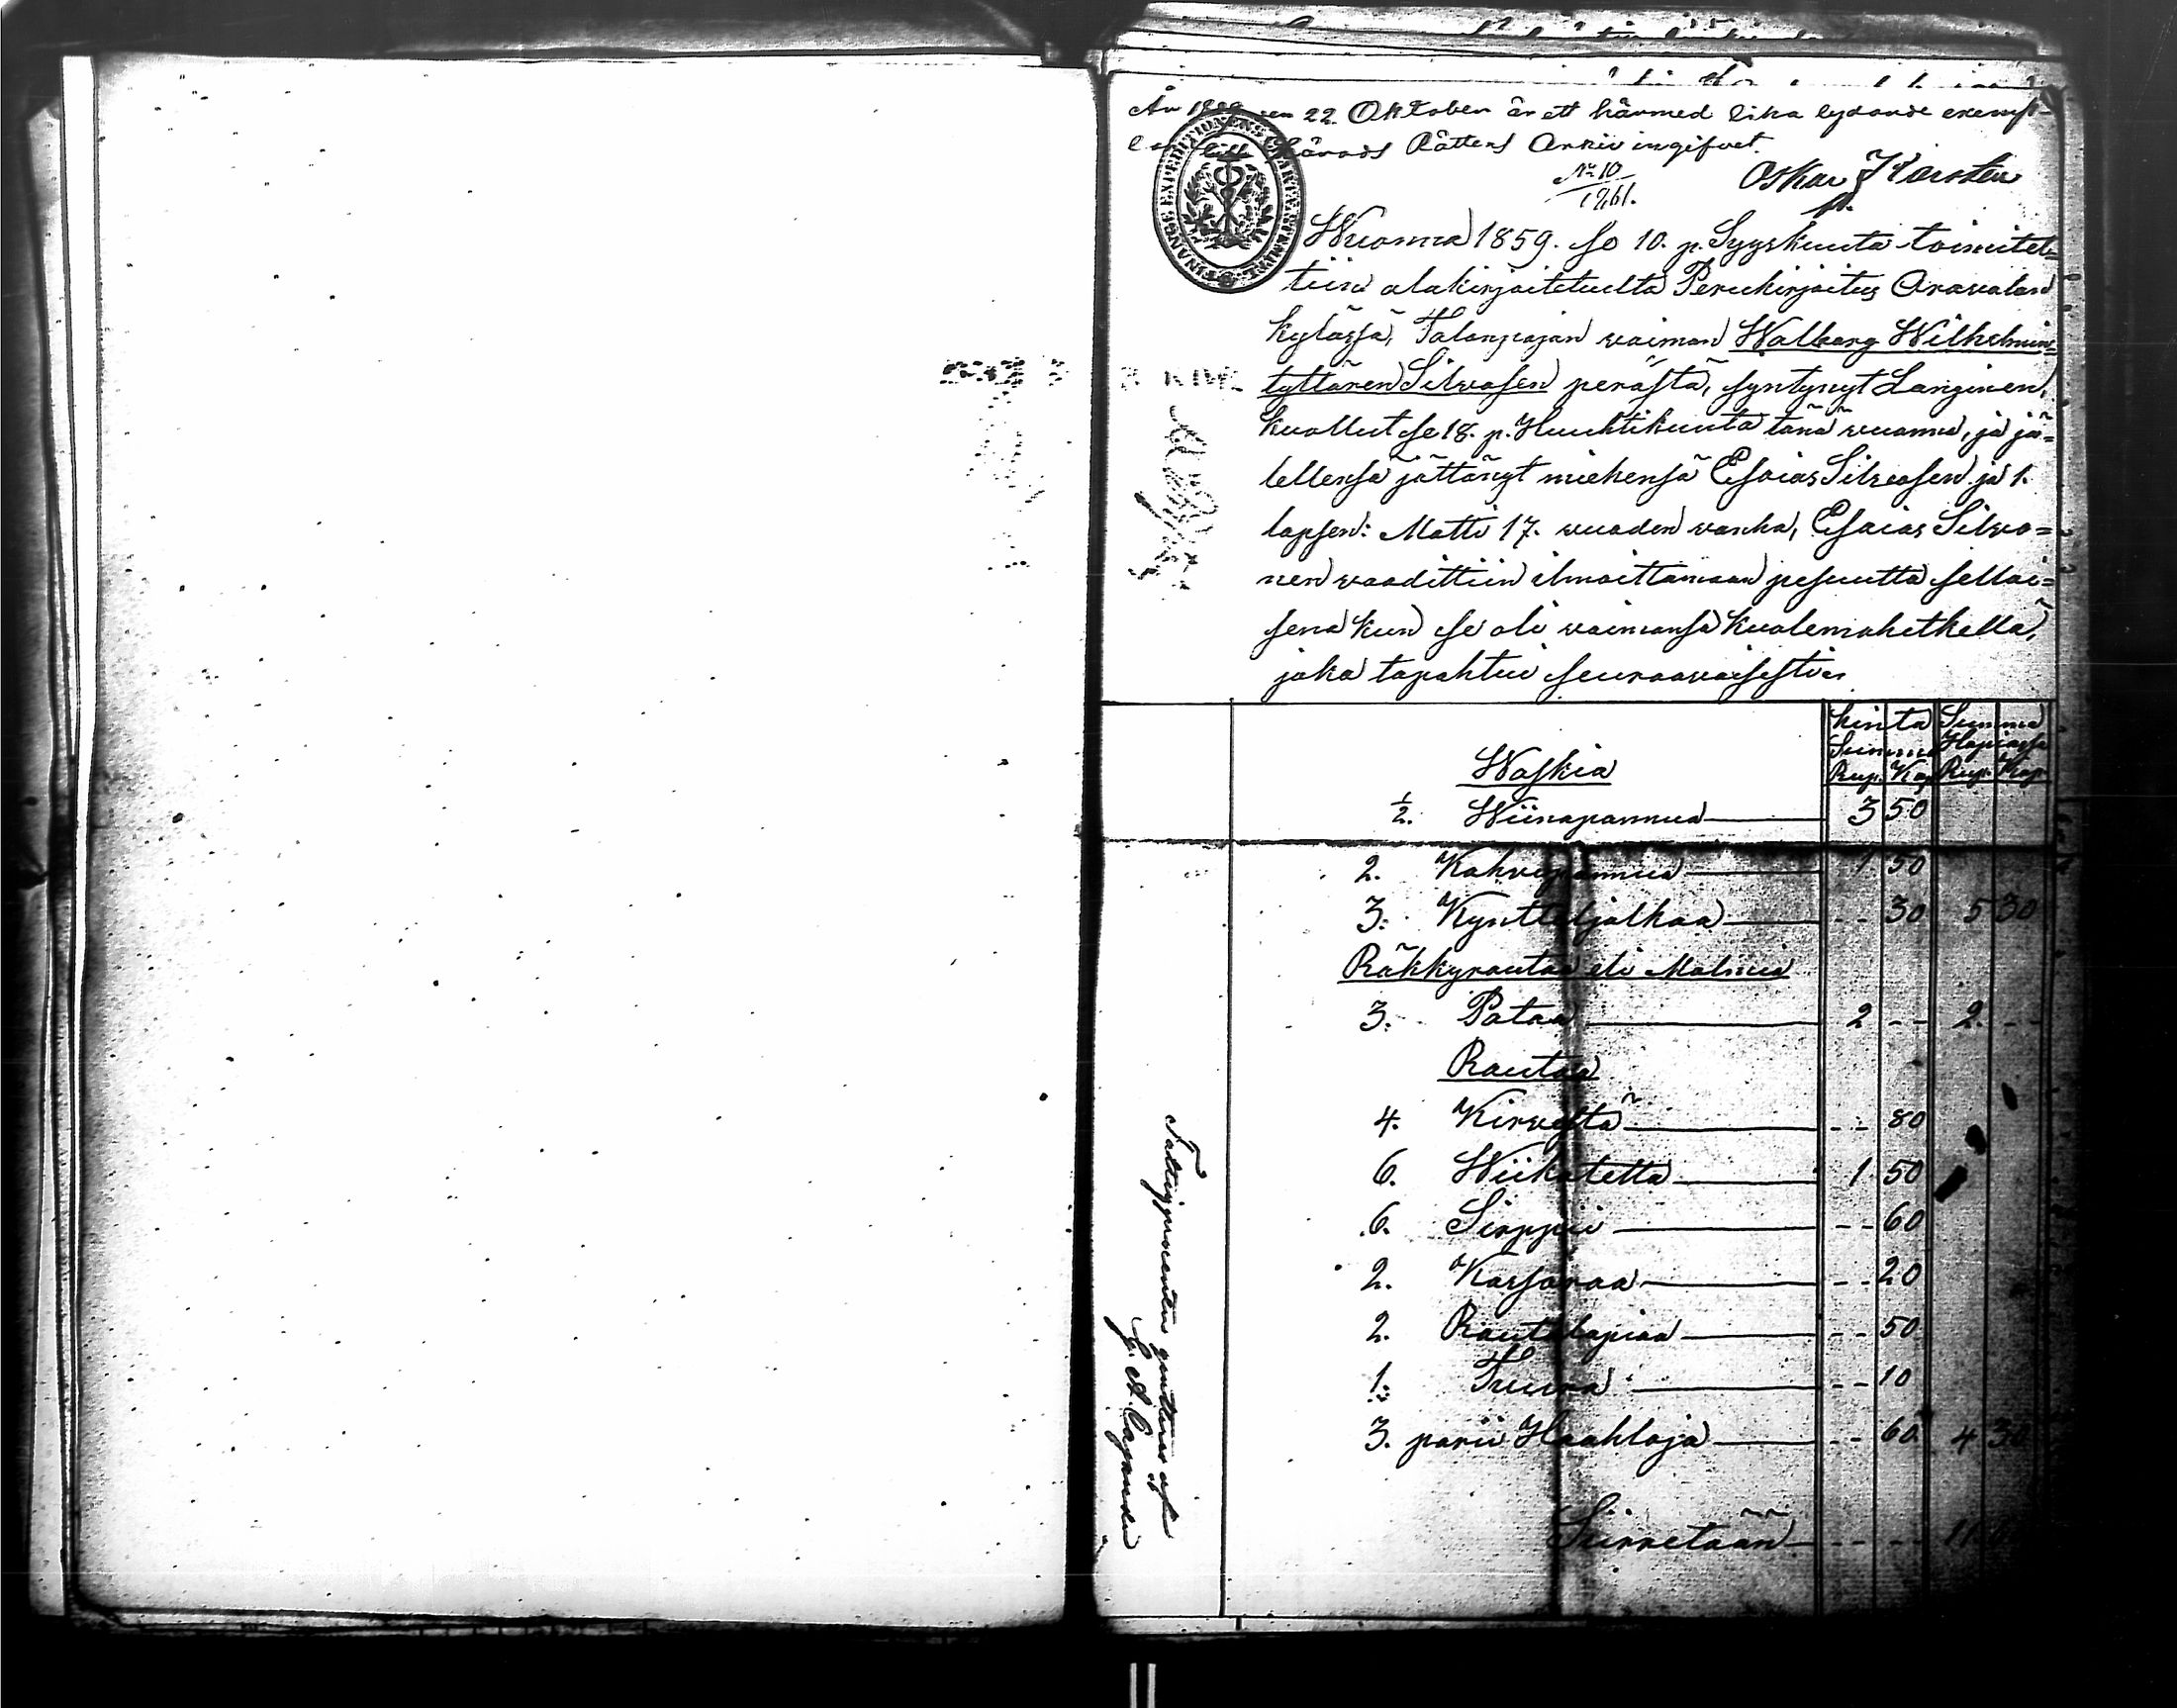 År 18 en 22 Oktober är ett härmed lika lydande exemp=
till Härads Rättens Arkiv ingifvet.
No 10
1861.
Oskar
FINANCE EXPEDITIONENS CHARTÆ
Wuonna 1859. se 10. p. Syyskuuta toimitet=
tiin alakirjoitetuilta Perukirjoitus Aravalan
kylässä, Talonpojan vaimon Walborg Wilhelmin=
tyttären Silvosen perästä, syntynyt Langinen,
kuollut se 18. p. Huuhtikuuta tänä vuonna, ja jä=
lellensä jättänyt miehensä Esaias Silvosen ja 1.
lapsen: Matti 17. vuoden vanha, Esaias Silvo=
nen vaadittiin ilmoittamaan pesuutta sellai=
sena kun se oli vaimonsa kuolemahetkellä,
joka tapahtui seuraavaisesti.
Kinta Summa
Summa Hopiassa
Rup. Kop. Rup. Kop.
Waskia
1/2. Wiinapannua 3 50
2. Kahvipannua 1 50
3. Kynttiljalkaa - - 30 5 30
Räkkyrautaa eli Malmia
3. Pataa 2 - - 2. - -
Rautaa
4. Kirvestä - - 80
6. Wiikatetta 1 50
6. Sirppii - - 60
2. Kassaraa - - 20
2. Rautalapiaa - - 50
1. Tuura - - 10
3. parii Haahloja - - 60 4 30
Siirretään - - - - 11
Fattigprocenten gulten af